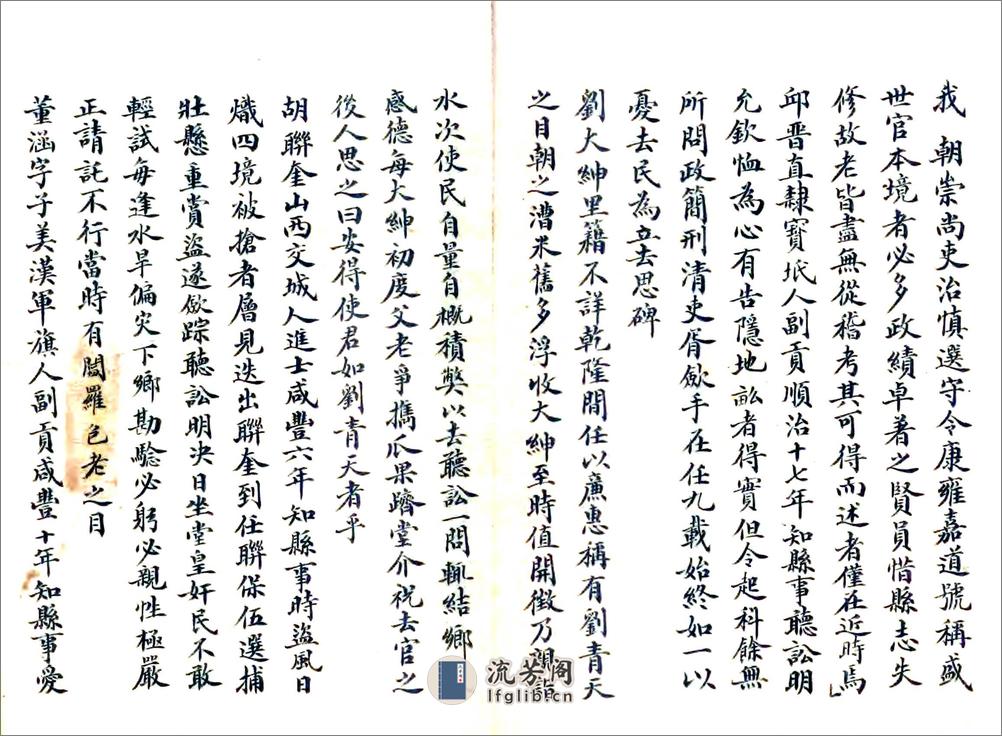 我　朝崇尚吏治慎選守令康雍嘉道號稱盛
世官本境者必多政績卓著之賢員惜縣志失
修故老皆盡無從稽考其可得而述者僅在近時焉
邱晋直隸寶坻人副貢順治十七年知縣事聽訟明
允欽恤為心有告隱地畝者得實但令起科餘無
所問政簡刑清吏胥歛手在任九載始終如一以
憂去民為立去思碑
劉大紳里籍不詳乾隆間任以廉惠稱有劉青天
之目朝之漕米舊多浮收大紳至時值開徵乃親詣
水次使民自量自概積獘以去聽訟一問輒結鄉
感德每大紳初度父老爭攜瓜果躋堂介祝去官之
後人思之曰安得使君如劉青天者乎
胡聯奎山西交城人進士咸豐六年知縣事時盜風日
熾四境被搶者層見迭出聯奎到任聯保伍選捕
壯懸重賞盜遂歛踪聽訟明决日坐堂皇奸民不敢
輕試每逢水旱偏灾下鄉勘驗必躬必親性極嚴
正請託不行當時有閻羅包老之目
董涵字子美漢軍旗人副貢咸豐十年知縣事愛
流芳阁
lfglib.cn